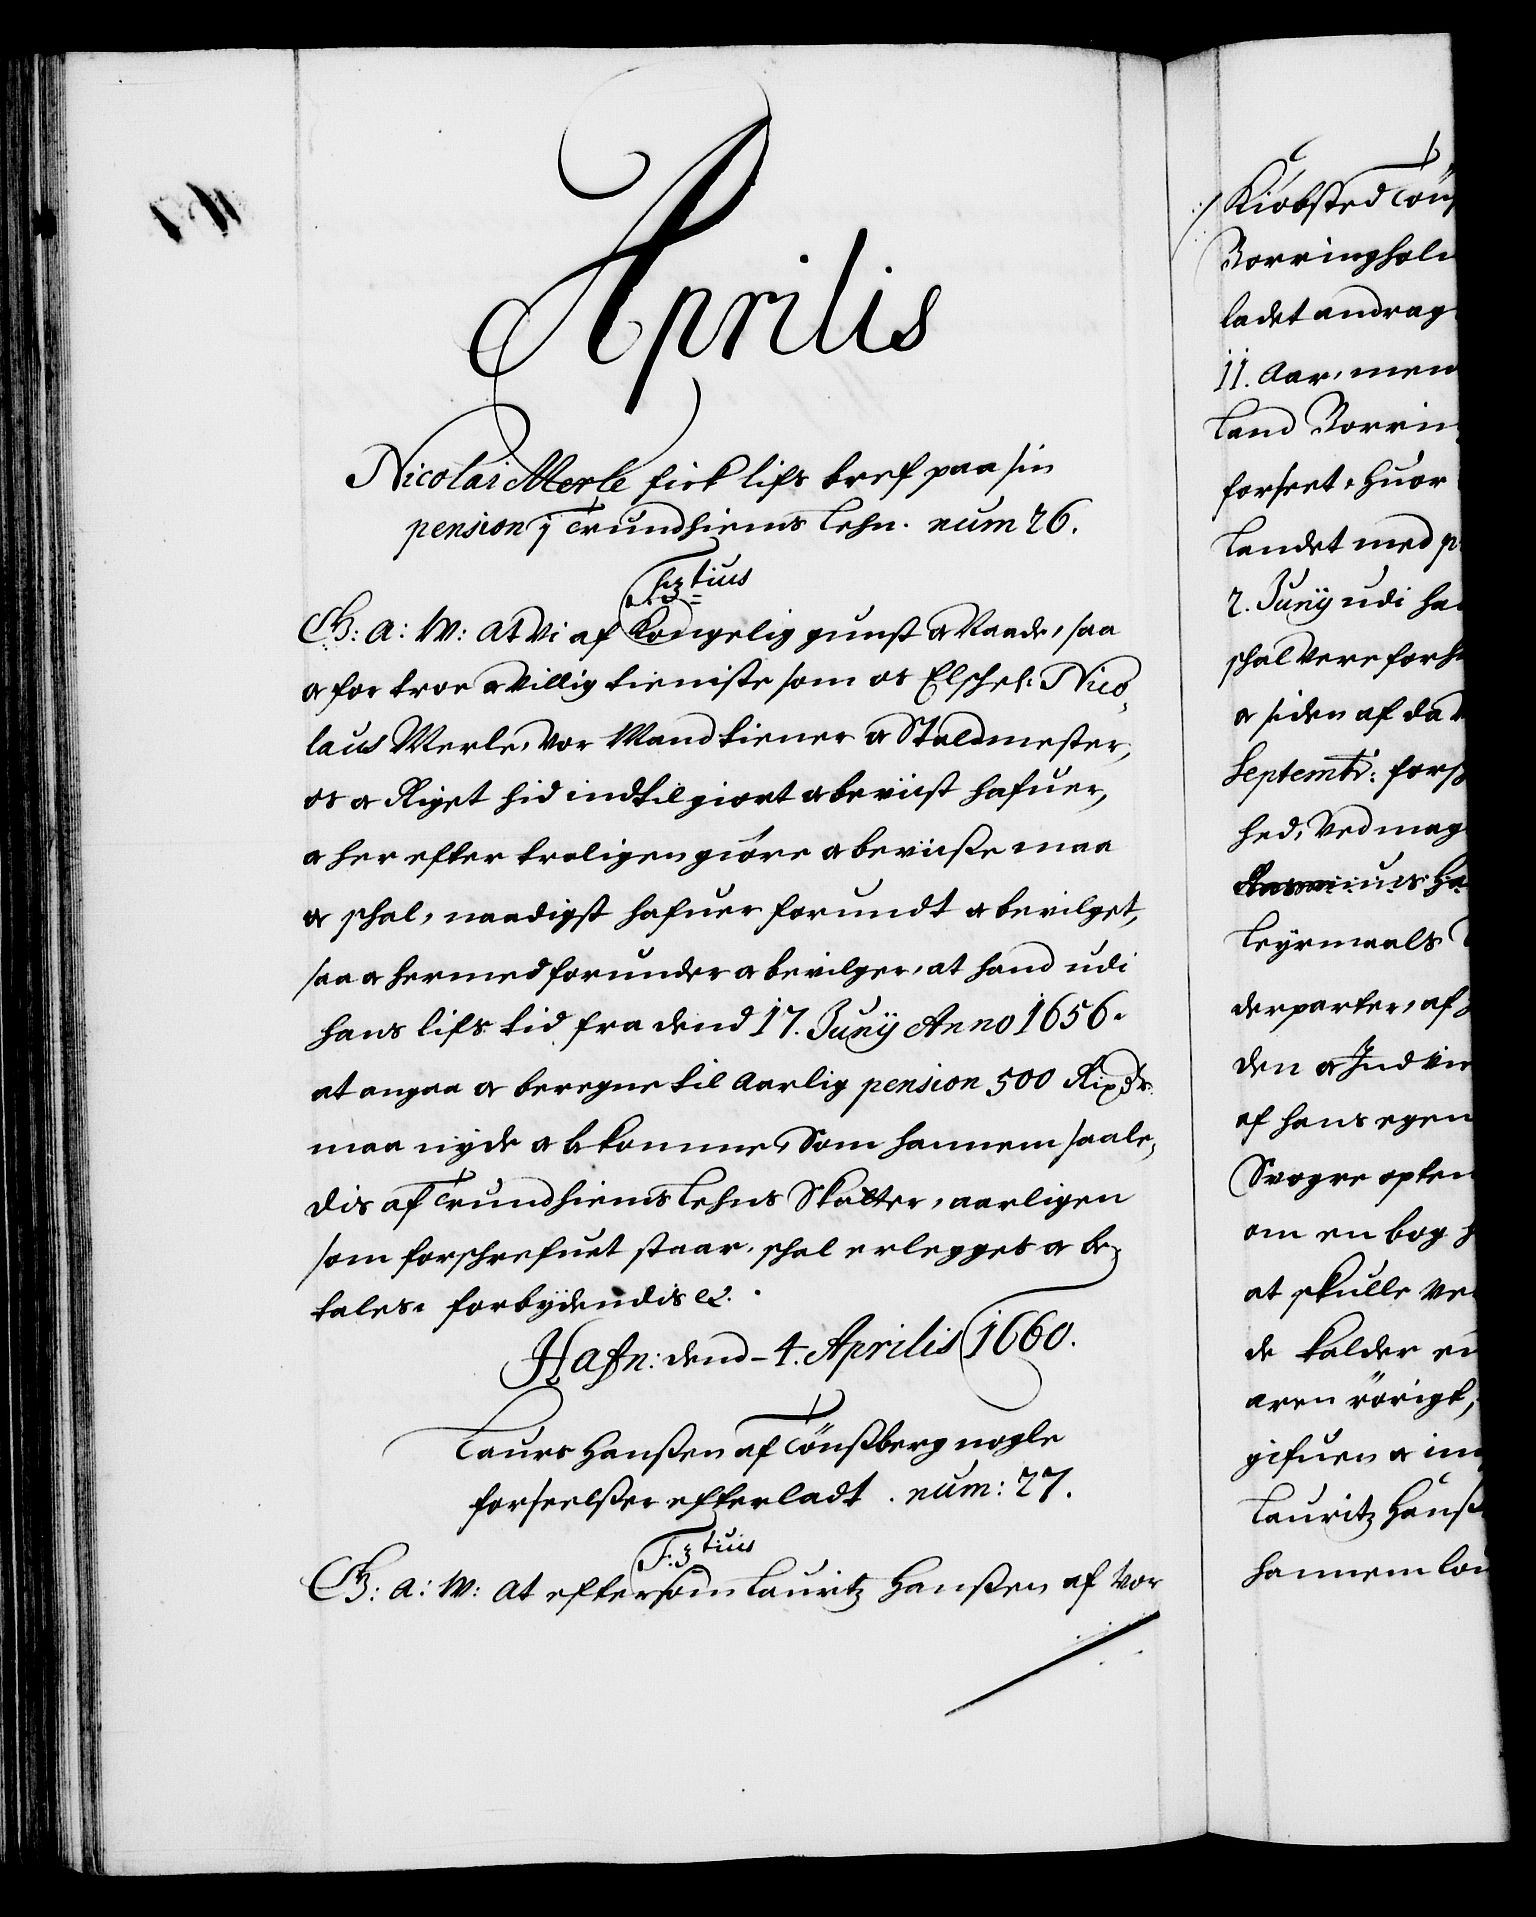 Aprilis
Nicolai Merle fick lifs bref paa sin
pension j Trundhiems Lehn. num 26.
F. 3tius
G: A: W: at Vi af Kongelig gunst oc Naade, saa
oc for troe oc Villig tieniste som os Elschel: Nico,
laus Merle, Vor Mand tiener oc Staldmester,
os oc Riget hid indtil giort oc beviist hafuer,
oc her efter troligen giøre oc beviisse maa
oc schal, naadigst hafuer forundt oc bevilget,
saa oc hermed forunder oc bevilger, at hand udi
hans lifs tid fra dend 17. Junij Anno 1656.
at angaa oc beregne til Aarlig pension 500 Rixdr.
maa nyde oc bekomme, Som hannem saale,
dis af Trundhiems Lehns Skatter, aarligen
som forschrefuet staar, schal erlegges oc be,
tales. forbydendis &.
Hafn: dend 4. Aprilis 1660.
Laurs Hanssen af Tønssberg nogle
forseelsser efterladt. num: 27.
F. 3tius
G: A: W: at eftersom Lauritz Hanssen af Vor
Kiøbsted Tøns
Borringhol
ladet andrag
11. Aar, men
Land Borrin
forseet, huor
Landet med p
2. Junij udi ha
schal Vere forh
oc siden af da
Septembr: fors
hed, Ved mag
Rasmus Ha
Leyrmaals
derparter, af
den oc Ind Vie
af hans egen
Svogre opten
om en bog
at skulle Ve
de kalder en
aren rørigt,
gifuen oc in
Lauritz Hanss
hannem lo